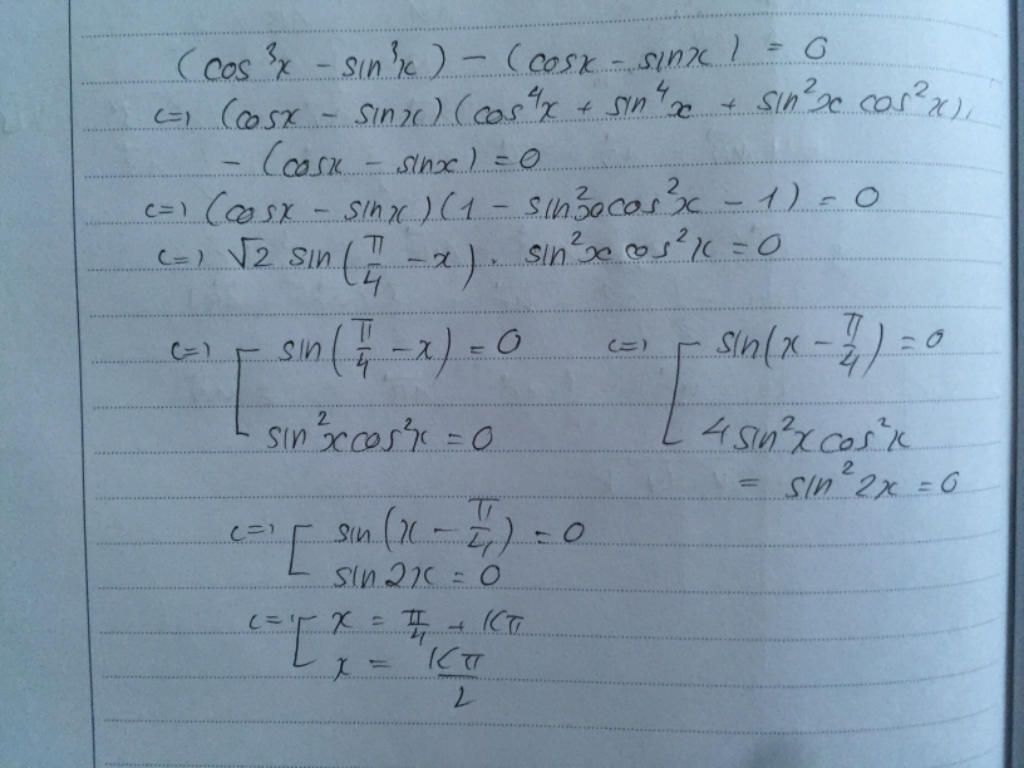 (cos³x − sin³x) − (cosx − sinx) = 0
<=> (cosx − sinx)(cos⁴x + sin⁴x + sin²x cos²x)
− (cosx − sinx) = 0
<=> (cosx − sinx)(1 − sin²xcos²x − 1) = 0
<=> √2 sin(π/4 − x). sin²x cos²x = 0
<=> [ sin(π/4 − x) = 0 <=> [ sin(x − π/4) = 0
sin²xcos²x = 0 4sin²xcos²x
= sin²2x = 0
<=> [ sin(x − π/4) = 0
sin2x = 0
<=> [ x = π/4 + kπ
x = kπ/2